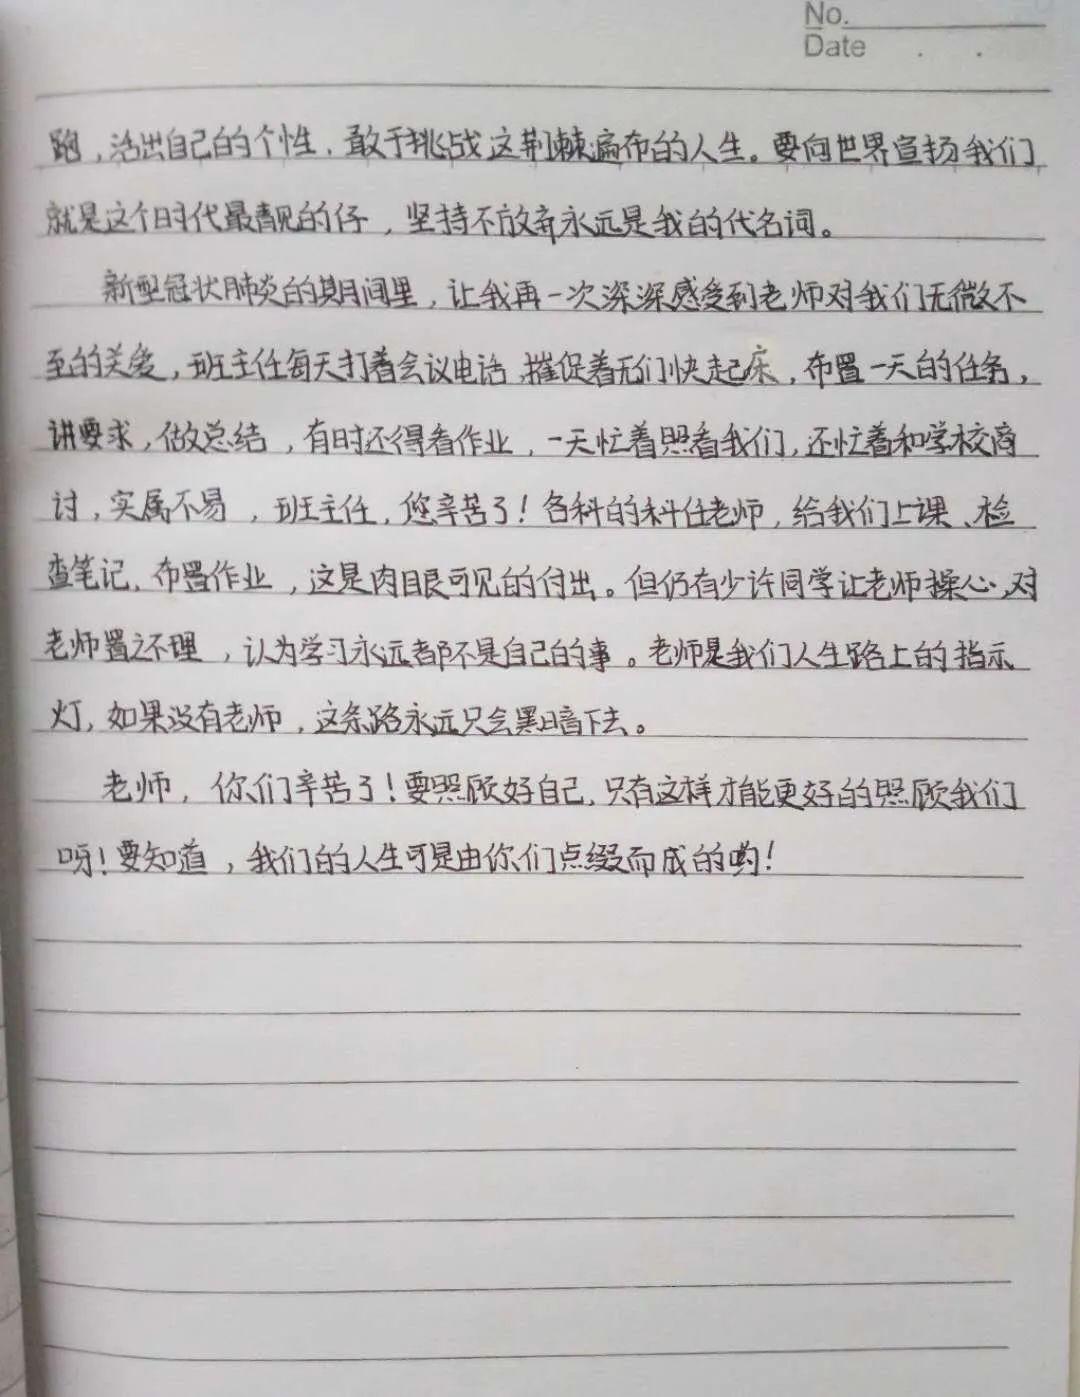 No.
Date . .
跑，活出自己的个性，敢于挑战这荆棘遍布的人生。要向世界宣扬我们
就是这个时代最靓的仔，坚持不放弃永远是我的代名词。
新型冠状肺炎的期间里，让我再一次深深感受到老师对我们无微不
至的关爱，班主任每天打着会议电话，摧促着我们快起床，布置一天的任务，
讲要求，做总结，有时还得看作业，一天忙着照看我们，还忙着和学校商
讨，实属不易，班主任，您辛苦了！各科的科任老师，给我们上课、检
查笔记，布置作业，这是肉眼可见的付出。但仍有少许同学让老师操心，对
老师置之不理，认为学习永远都不是自己的事。老师是我们人生路上的指示
灯，如果没有老师，这条路永远只会黑暗下去。
老师，你们辛苦了！要照顾好自己，只有这样才能更好的照顾我们
呀！要知道，我们的人生可是由你们点缀而成的哟！